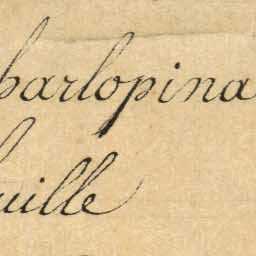 harlopina
uille